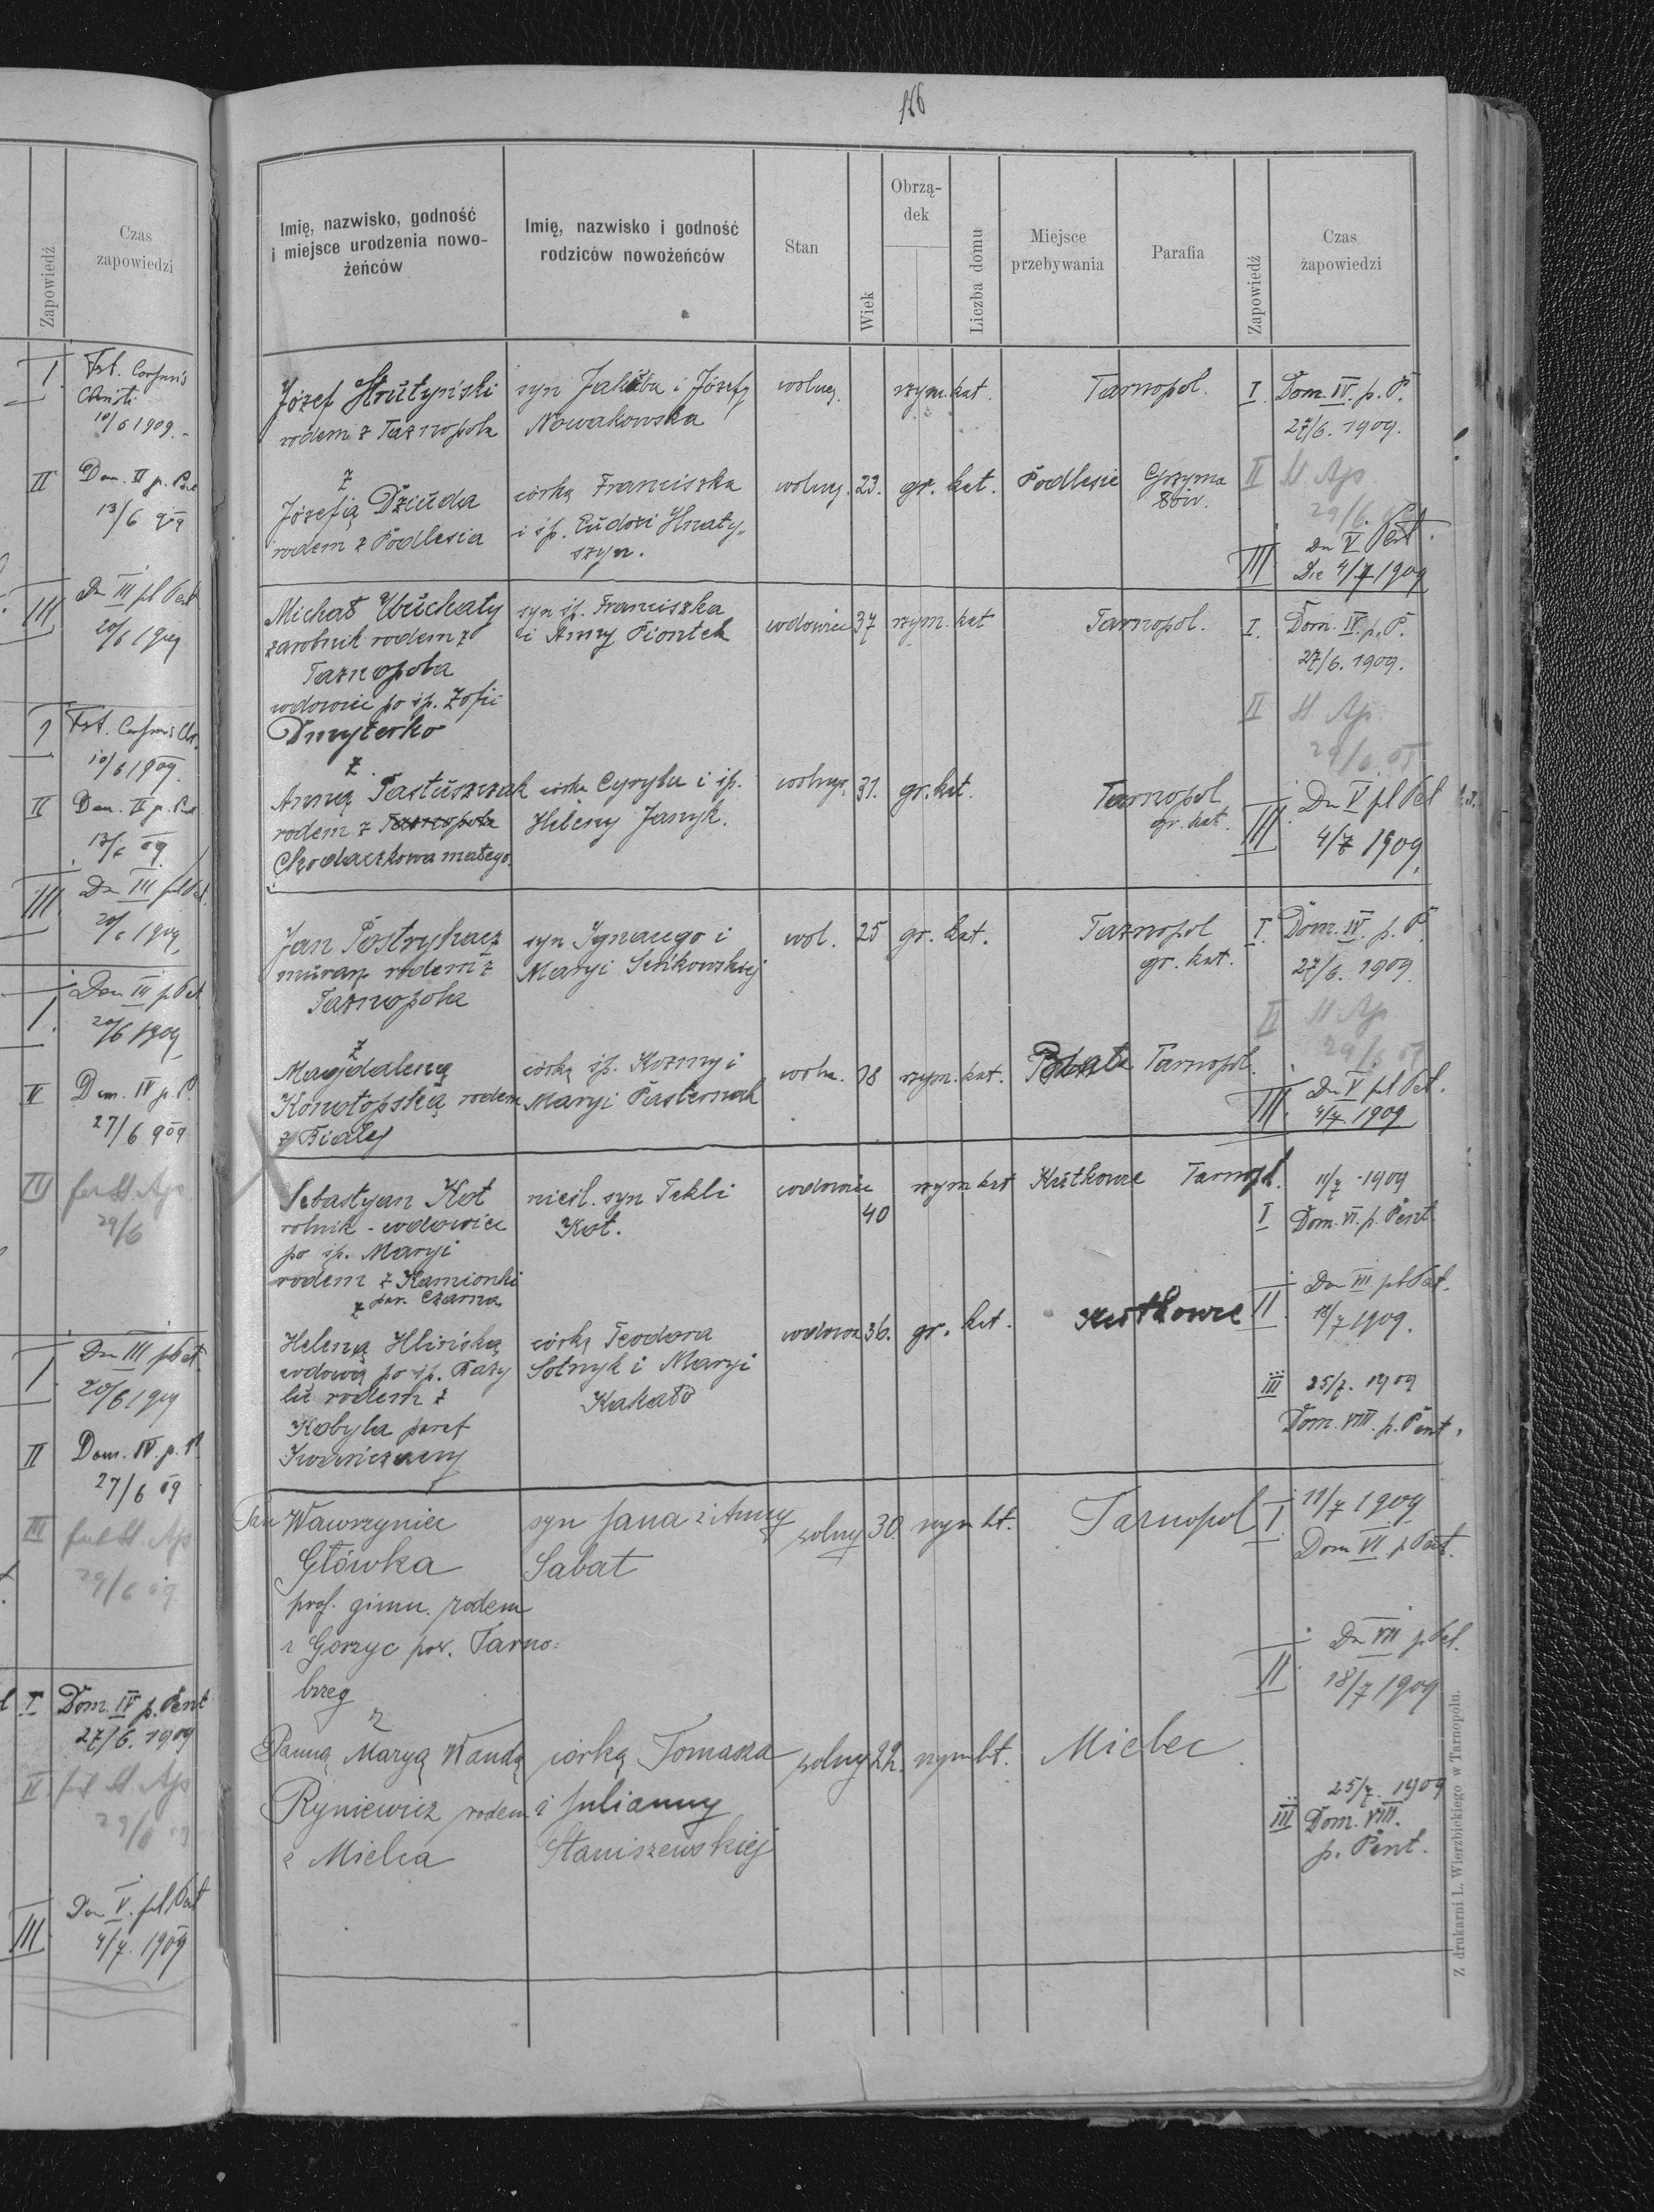 Zapowiedź
Czas
zapowiedzi
I.
Fst. Corporis
Christi
10/6 1909.
II
Dom. II p. Pent
13/6 909
III
Do III pt Pent
20/6 1909
I
Fst. Corporis Chr.
10/6 1909.
II
Dom. II p. Pent
13/6 09
III
Do III pt Pet.
20/6 1909
I.
Dom III p. Pet
20/6 1909
II
Dom. IV p. P.
27/6 909
III
fest. Ap.
29/6
I
Do III p Pet
20/6 1909
II
Dom. IV. p. P.
27/6 09
III
fest. Ap
29/6 09
I
Dom. IV p. Pent
27/6. 1909
II
fest. Ap
29/6 09
III
Do V. pt Pent
4/7. 1909
126
Imię, nazwisko, godność
i miejsce urodzenia nowo-
żeńców
Imię, nazwisko i godność
rodziców nowożeńców
Stan
Wiek
Obrzą-
dek
Liczba domu
Miejsce
przebywania
Parafia
Zapowiedź
Czas
zapowiedzi
Józef Hrutyński syn Jakóba i Józefy wolny. rzym. kat. Tarnopol. I. Dom. IV. p. P.
rodem z Tarnopola Nowakowska 27/6. 1909.
z
Józefią Dziuda córką Franciszka wolny. 23. gr. kat. Podlesie Grzyma II Ap
rodem z Podlesia i śp. Eudozi Hnaty„ łów. 29/6
szyn. III Do V Pent.
Die 4/7 1909
Michał Ubuchaty syn śp. Franciszka wdowiec 37 rzym. kat Tarnopol. I. Dom. IV. p. P.
zarobnik rodem z i Anny Piontek 27/6. 1909.
Tarnopola
wdowiec po śp. Zofii II Ap.
Dmyterko 29/6 09
z
Anną Pastuszczak córka Cyryla i śp. wolny. 31. gr. kat. Tarnopol III Do V pt Pet
rodem z Tarnopola Heleny Janyk. gr. kat. 4/7 1909.
Chodaczkowa małego.
Jan Postryhacz syn Ignacego i wol. 25 gr. kat. Tarnopol I. Dom. IV. p. P.
murarz rodem z Maryi Seńkowskiej gr. kat. 27/6. 1909
Tarnopola
II Ap
29/6 09
z
Magdaleną córką śp. Kozmy i wolna. 18 rzym. kat. Biała Tarnopol.
Konotopską rodem Maryi Pasternak III. Do V pt Pet.
z Białej 4/7. 1909
Sebastyan Kot nieśl. syn Tekli wdowiec rzym kat Kutkowce Tarnopol. 11/7 - 1909
rolnik - wdowiec Kot. 40 I Dom. VI. p. Pent.
po śp. Maryi
rodem z Kamionki
par. Czarna II Do VII pt Pet.
z 18/7 1909.
Heleną Hlińską córką Teodora wdowa 36. gr. kat. Kutkowce
wdową po śp. Bazy Sotnyk i Maryi
lu rodem z Kakało III 25/7. 1909
Kobyla paraf Dom. VIII. p. Pent.
Iwańczany
Pan Wawrzyniec syn Jana i Anny wolny 30. rzym kt. Tarnopol I 11/7 1909
Główka Sabat Dom VI p. Pent.
prof. gimn. rodem
z Gorzyc pow. Tarno= II Do VII p. Pet.
brzeg 18/7 1909
z
Panną Maryą Wandą córką Tomasza wolny 22. rzym kt. Mielec
Ryniewicz rodem i Julianny III 25/7. 1909
z Mielca Staniszewskiej Dom. VIII.
p. Pent.
Z drukarni L. Wierzbickiego w Tarnopolu.